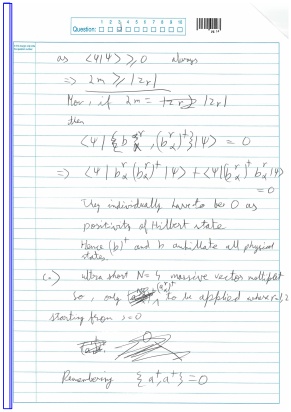 Question: 1 2 3 4 5 6 7 8 9 10
as <ψ|ψ> ≥ 0 always
=> 2m ≥ |z_r|
Mor, if 2m = |z_r|
then
<ψ| { b_α^r, (b_α^r)† } |ψ> = 0
=> <ψ| b_α^r (b_α^r)† |ψ> + <ψ| (b_α^r)† b_α^r |ψ>
= 0
They individually have to be 0 as
positivity of Hilbert state
Hence (b)† and b anhilate all physical
states.
(c.) ultra short N=4 massive vector multiplet
So, only (a^r)† to be applied where r=1,2
starting from s=0
Remembering { a†, a† } = 0